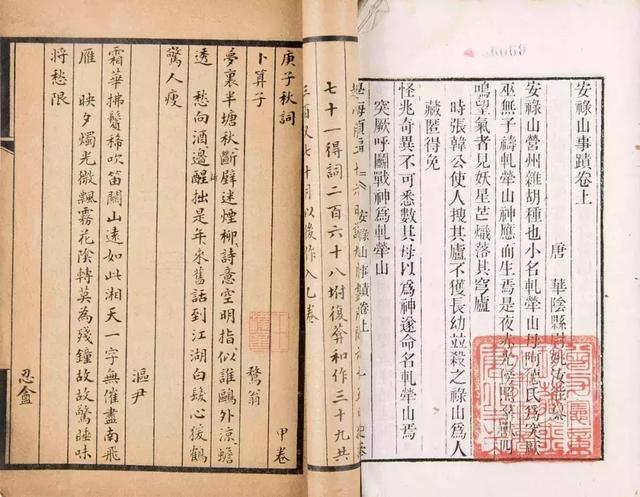 安祿山事蹟卷上
唐 華陰縣尉姚汝能纂
安祿山營州雜胡種也小名軋犖山母阿德氏為突厥
巫無子禱軋犖山神應而生焉是夜赤光傍照羣獸四
鳴望氣者見妖星芒熾落其穹廬
時張韓公使人搜其廬不獲長幼並殺之祿山為人
藏匿得免
怪兆奇異不可悉數其母以為神遂命名軋犖山焉
突厥呼鬭戰神為軋犖山
安祿山事蹟卷上
七十一得詞二百六十八坿復葊和作三十九共
三百又七以後作入乙卷
庚子秋詞 甲卷
卜算子 鶩翁
夢裏半塘秋斷壁迷煙柳詩意空明指似誰鷗外涼蟾
透 愁向酒邊醒拙是年來舊話到江湖白髮心猨鶴
驚人瘦
漚尹
霜華拂鬢稀吹笛關山遠如此湘天一字無催盡南飛
雁 映夕燭光微飄霧花陰轉莫為殘鐘故故驚睡味
將愁限
忍盦